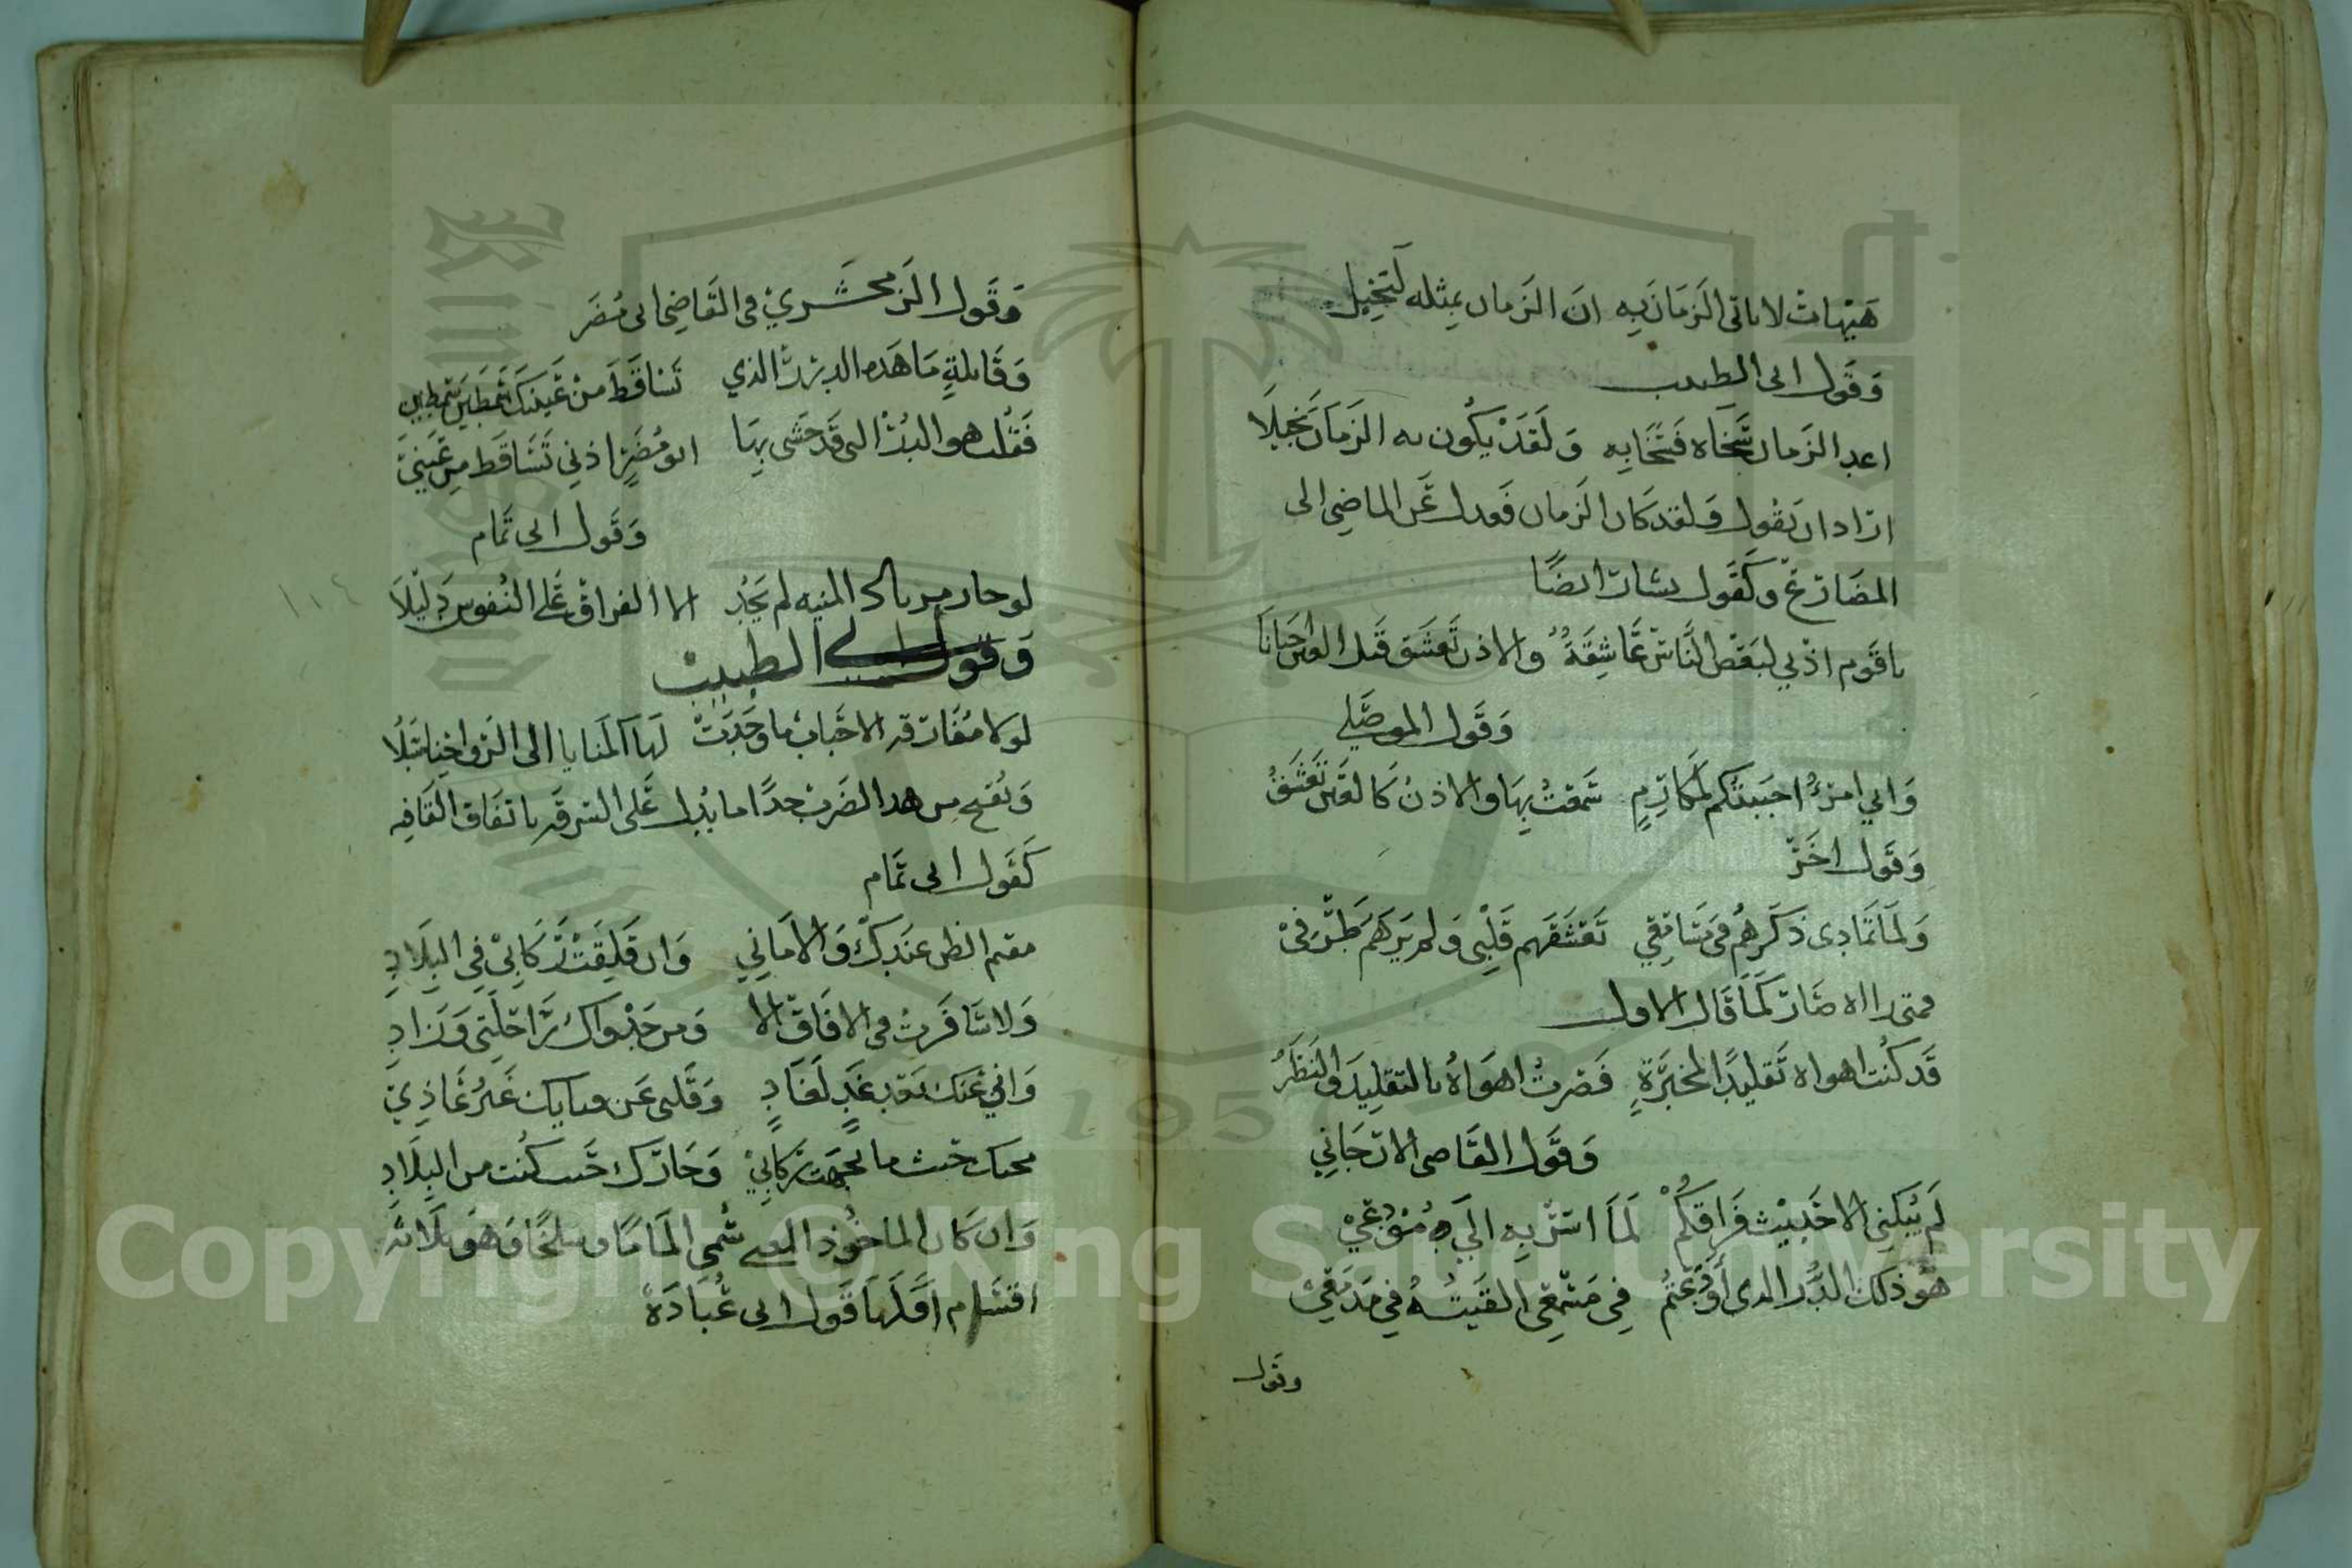 هَيْهاتْ لا ياتى الزَمَان بِه انَ الزَمان بِمثله لَبَخِيل
وَقَول ابى الطيب
اعدا الزَمان سَّخاه فَسَّخَابِه وَلَقَدْ يكُون به الزَمَان بَخِيلَا
ارّاد ان يَقُول وَلقد كَان الزَمان فعدل عَن الماضِى الى
المضَارّع وكَقَول بشار ايضًا
ياقَوم اذْنِي لبَعْض النَّاسّ عَّاشِقَةٌ والاذن تَعشَق قَبل العَين احيَانَا
وَقَول الموصَّلي
وَانِي امرّءٌ احبَبتكم لَمكَارِمٍ سَمعتُ بِهَا والاذنْ كَالعَين تَعْشَقُ
وَقَول اخَرّ
وَلَمَا تمَادى ذكَرهُم فى مَسَامِعِي تَعَشَقَهم قَلْبِى وَلم يَرَهَمُ طَرّفِىْ
فمتى راه صَارّ كَمَا قَال الاول
قَد كنْت اهواه تَقليدًا لمخبَرَةٍ فَصِرتُ اهوَاهُ بالتقلِيد والنَظَرُ
وَقَول القَاضى الارّجَانِي
لَم يُبكنِى الا حَديْث فرَاقكُمْ لَمَا اسَرّ بِه الَيَ مُوَدّعِيْ
هُو ذلكَ الدُّر الذى اَوْدَعتُم فِي مَسْمَعِى القَيتُهُ فِي مَدمَعِيْ
وقول
وَقَول الزمخشَرِيْ فى القَاضِي ابى مُضَر
وَقَايلةٍ مَا هَذه الدررّ الذي تَسَاقَطَ منْ عَينكَ سَمطَين سَمطين
فَقلت هو الدُرّ الذى قَد حَشى بِهَا ابو مُضَرٍ اذنِي تَسَاقَط مِن عَينيَ
وَقَول ابى تمَام
لو حار مرتاد المنيه لم يَجُد الا الفراقْ عَلى النُفوس دَلِيْلَا
وَقَول ابى الطيب
لولا مفَارّقه الاحبابْ ما وجَدَتْ لَهَا المنايا الى ارواحِنا سُبُلَا
وَيُقبح من هذا الضَرب جدًا ما يُدل عَلى السرقَه باتفاق القَافِيه
كَقَول ابى تمَام
مقيم الظن عنَدكّ وَالامَانِي وَان قَلِقَتْ رّكَابِيْ فِي البِلَادِ
وَلا سَافَرتْ فى الافَاقّ الا وَمن جَدْواكَ رّاحلَتِى وَزَادِ
وَانِي عَنكَ بعْد غَدٍ لَغَادٍ وَقَلبى عَن فنايكَ غَيرُ غَادِي
محبك حَيث ما اتجهَت رّكَابِيْ وَجَارّكَ حَيث كنْت من البِلَادِ
وَان كَان الماخُوذ المعنى سُمِى المَامًا وسلخًا وَهُو ثلَاثه
اقسَام اوَلَهَا قَول ابى عُبَادَة
١٠٤
Copyright © King Saud University
1957